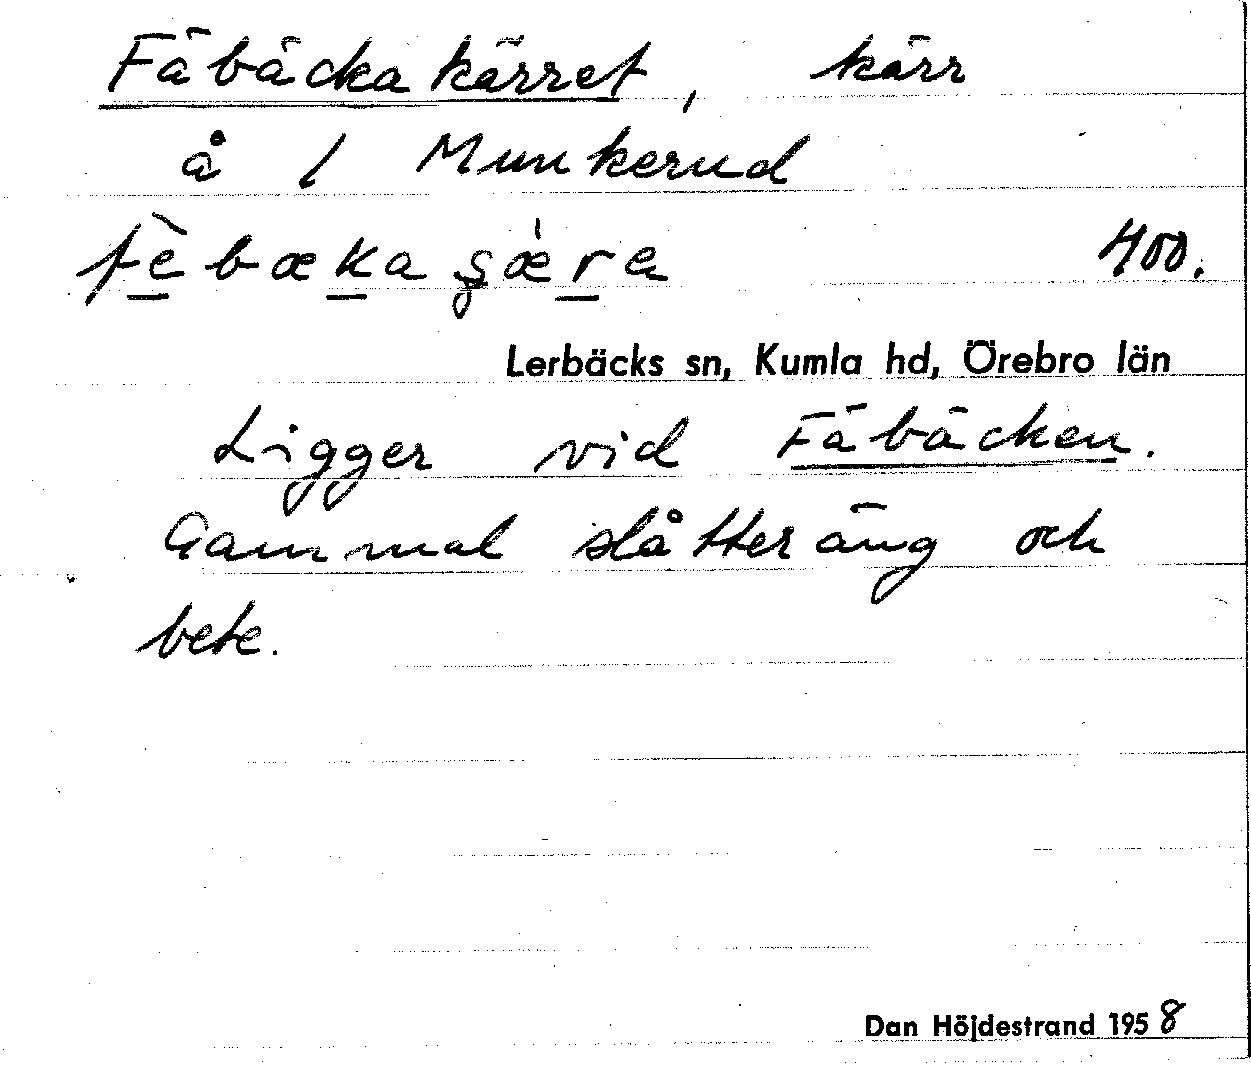 Fäbäckakärret, kärr
å 1 Munkerud
fè̱bæḵaşǽṟa 400.
Lerbäcks sn, Kumla hd, Örebro län
Ligger vid Fäbäcken.
Gammal slåtteräng och
bete.
Dan Höjdestrand 1958